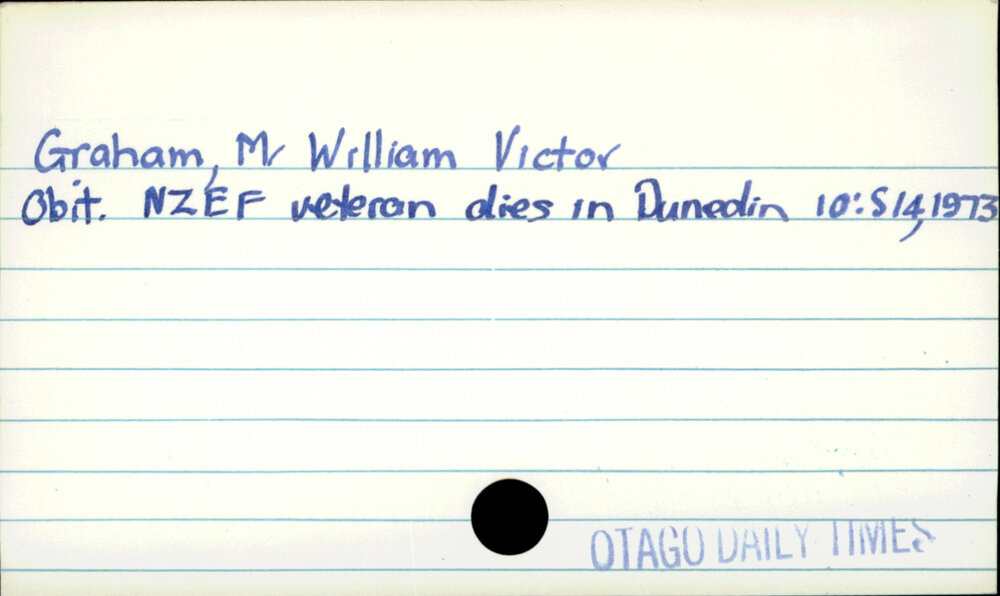 Graham, Mr William Victor
Obit. NZEF veteran dies in Dunedin 10: S14, 1973
OTAGO DAILY TIMES